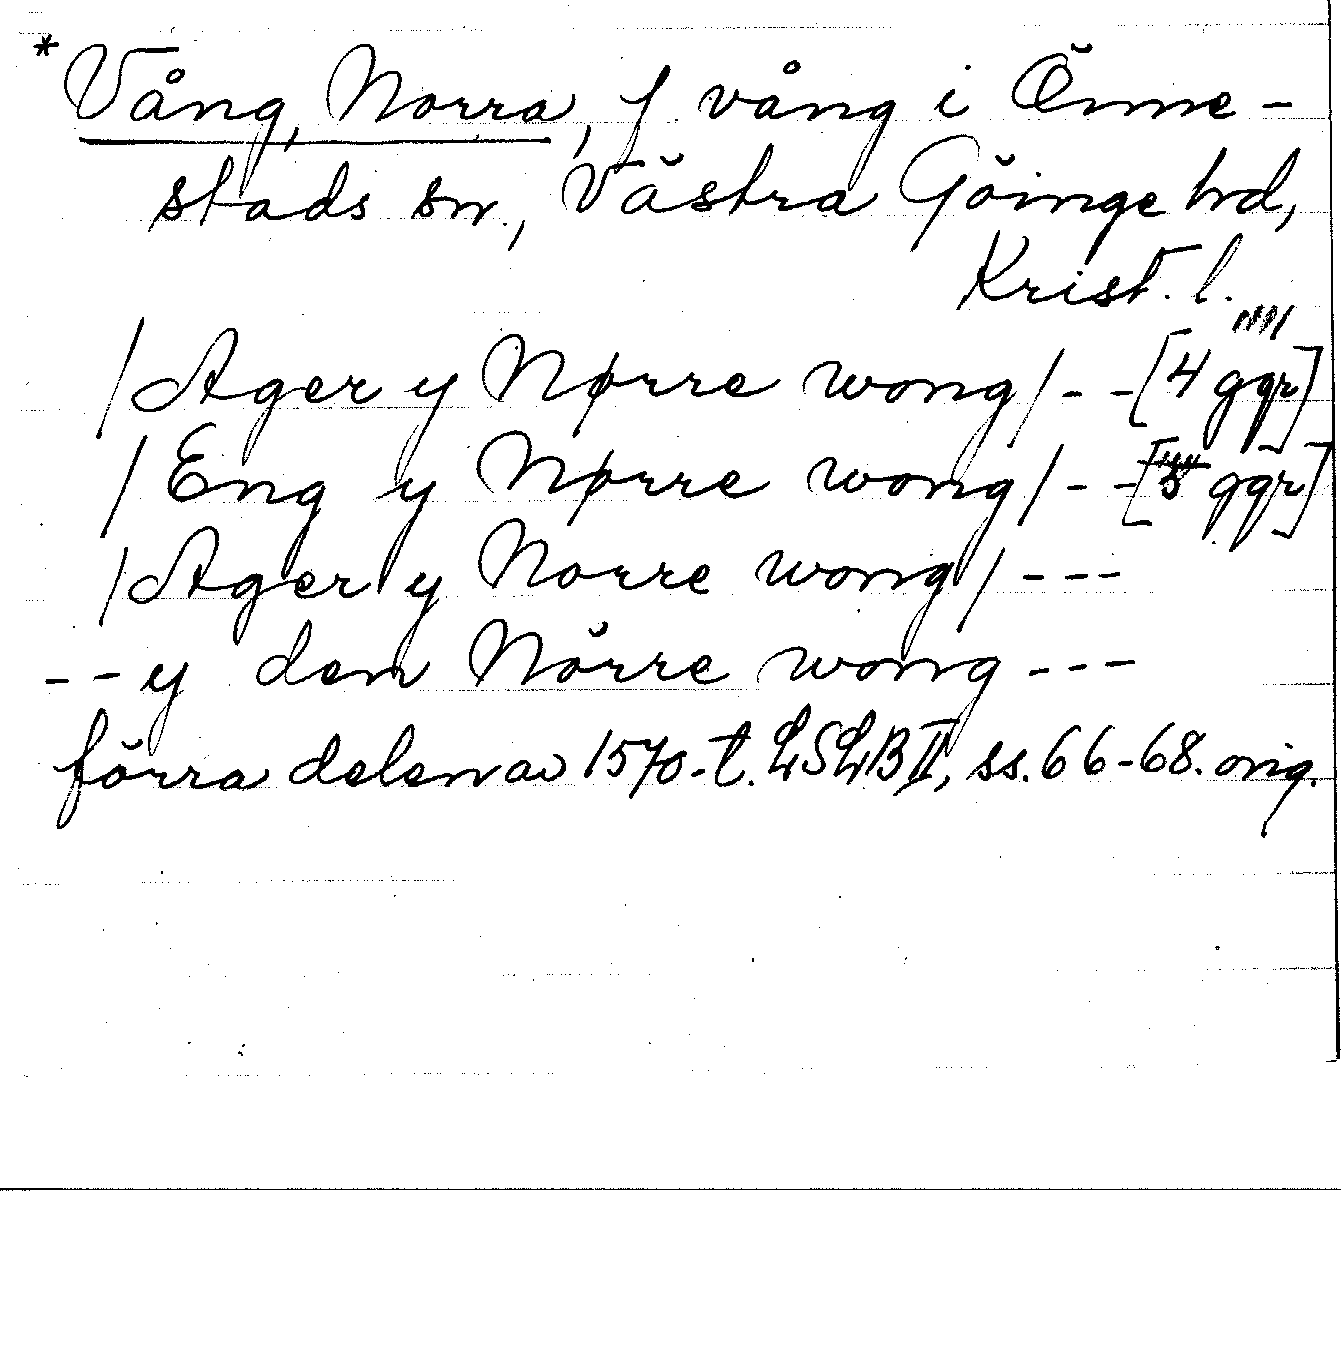 *Vång, Norra, f vång i Önne-
stads sn., Västra Göinge hd,
Krist. l.
/Ager y Nørre wong/--[4 ggr]
/Eng y Nørre wong/--[3 ggr]
/Ager y Norre wong/---
--y den Nörre wong---
förra delen av 1570-t. LSLB II, ss. 66-68. orig.